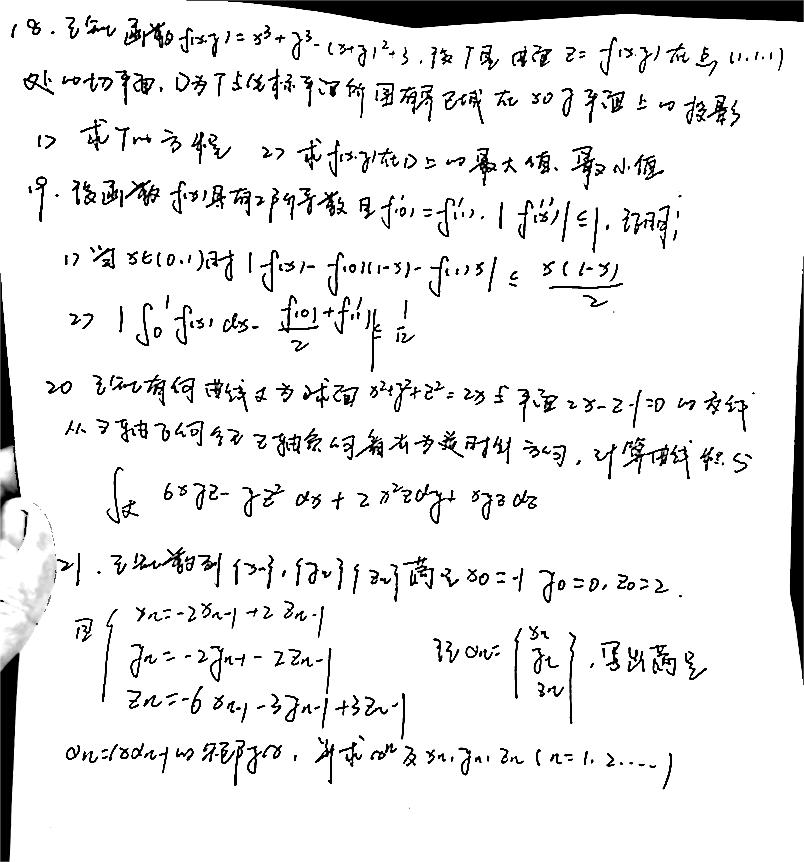 18. 已知函数f(x,y)=x³+y³-(x+y)²+3, 设T是曲面z=f(x,y)在点(1.1.1)
处的切平面, D为T与坐标平面所围有界区域在xoy平面上的投影
1) 求T的方程 2) 求f(x,y)在D上的最大值、最小值
19. 设函数f(x)具有2阶导数且f'(0)=f'(1). |f''(x)|≤1. 证明:
1) 当x∈(0.1)时 |f(x)-f(0)(1-x)-f(1)x| ≤ x(1-x)/2
2) |∫₀¹f(x)dx - (f(0)+f(1))/2| ≤ 1/12
20 已知有向曲线L为球面x²+y²+z²=2x与平面2x-z-1=0的交线
从z轴正向往z轴负向看去为逆时针方向, 计算曲线积分
∫_L 6xyz-yz² dx + 2x²zdy + xyzdz
21. 已知数列{xn}, {yn} {zn}满足x0=-1 y0=0, z0=2.
且 { xn=-2xn-1+2zn-1
yn=-2yn-1-2zn-1
zn=-6xn-1-3yn-1+3zn-1
记αn={xn yn zn}, 写出满足
αn=Aαn-1的矩阵A, 并求Aⁿ及xn, yn, zn (n=1, 2.....)